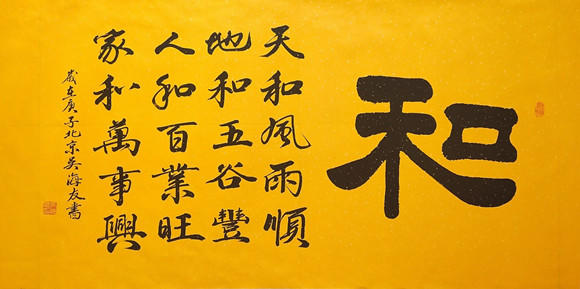 和
天和風雨順
地和五谷豐
人和百業旺
家和萬事興
歲在庚子北京吳海友書